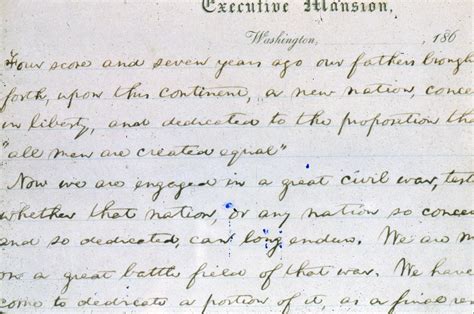 Executive Mansion,
Washington, 186
Four score and seven years ago our fathers brough
forth, upon this continent, a new nation, conce
in liberty, and dedicated to the proposition tha
"all men are created equal"
Now we are engaged in a great civil war, test
whether that nation, or any nation so concei
and so dedicated, can long endure. We are m
on a great battle field of that war. We have
come to dedicate a portion of it, as a final res